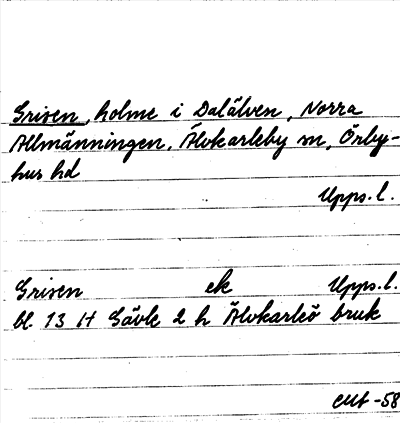 Grisen, holme i Dalälven, Norra
Allmänningen, Älvkarleby sn, Örby-
hus hd
Upps.l.
Grisen ek Upps.l.
bl. 13 H Gävle 2 h Älvkarleö bruk
-58